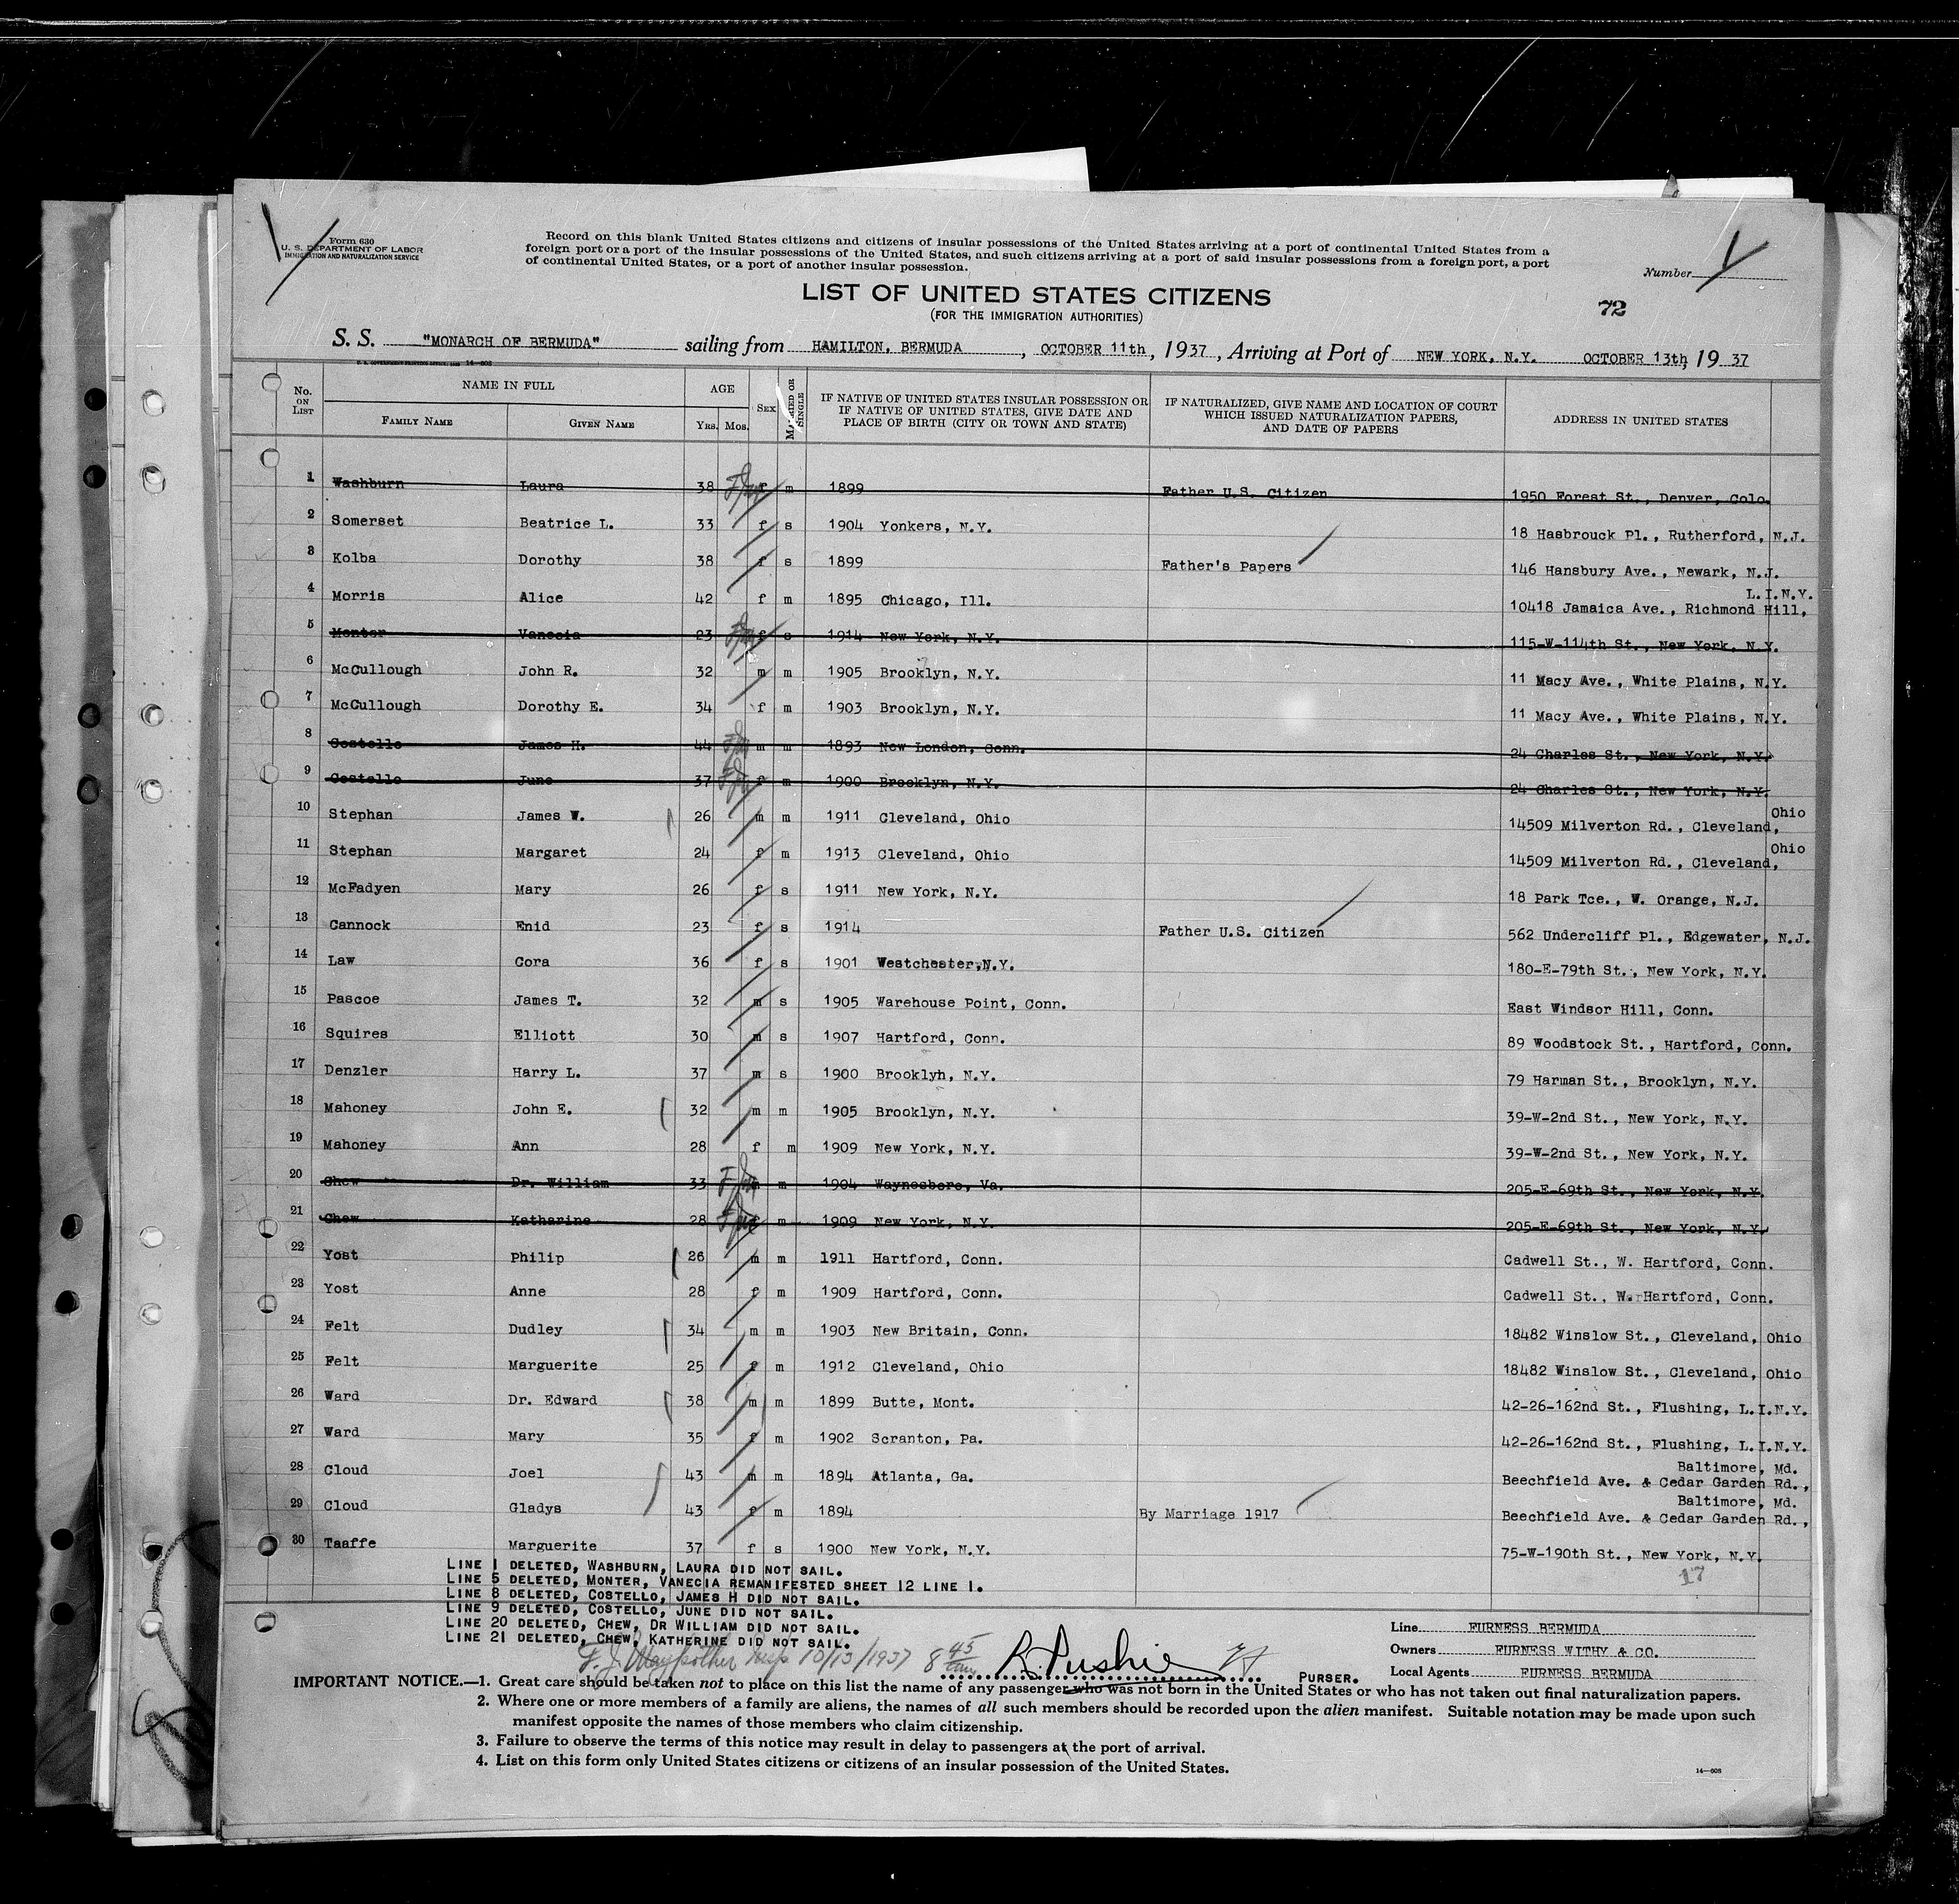 Form 630
U. S. DEPARTMENT OF LABOR
IMMIGRATION AND NATURALIZATION SERVICE
Record on this blank United States citizens and citizens of insular possessions of the United States arriving at a port of continental United States from a
foreign port or a port of the insular possessions of the United States, and such citizens arriving at a port of said insular possessions from a foreign port, a port
of continental United States, or a port of another insular possession.
Number
LIST OF UNITED STATES CITIZENS
(FOR THE IMMIGRATION AUTHORITIES)
72
S. S. "MONARCH OF BERMUDA" sailing from HAMILTON, BERMUDA, OCTOBER 11th, 1937, Arriving at Port of NEW YORK, N.Y. OCTOBER 13th, 19 37
No. ON LIST NAME IN FULL AGE SEX MARRIED OR SINGLE IF NATIVE OF UNITED STATES INSULAR POSSESSION OR IF NATIVE OF UNITED STATES, GIVE DATE AND PLACE OF BIRTH (CITY OR TOWN AND STATE) IF NATURALIZED, GIVE NAME AND LOCATION OF COURT WHICH ISSUED NATURALIZATION PAPERS, AND DATE OF PAPERS ADDRESS IN UNITED STATES
FAMILY NAME GIVEN NAME YRS. MOS.
1 Washburn Laura 38 f m 1899 Father U.S. Citizen 1950 Forest St., Denver, Colo.
2 Somerset Beatrice L. 33 f s 1904 Yonkers, N.Y. 18 Hasbrouck Pl., Rutherford, N.J.
3 Kolba Dorothy 38 f s 1899 Father's Papers 146 Hansbury Ave., Newark, N.J.
4 Morris Alice 42 f m 1895 Chicago, Ill. 10418 Jamaica Ave., Richmond Hill, L.I.N.Y.
5 Monter Vanecia 23 f s 1914 New York, N.Y. 115-W-114th St., New York, N.Y.
6 McCullough John R. 32 m m 1905 Brooklyn, N.Y. 11 Macy Ave., White Plains, N.Y.
7 McCullough Dorothy E. 34 f m 1903 Brooklyn, N.Y. 11 Macy Ave., White Plains, N.Y.
8 Costello James H. 44 m m 1893 New London, Conn. 24 Charles St., New York, N.Y.
9 Costello June 37 f m 1900 Brooklyn, N.Y. 24 Charles St., New York, N.Y.
10 Stephan James W. 26 m m 1911 Cleveland, Ohio 14509 Milverton Rd., Cleveland, Ohio
11 Stephan Margaret 24 f m 1913 Cleveland, Ohio 14509 Milverton Rd., Cleveland, Ohio
12 McFadyen Mary 26 f s 1911 New York, N.Y. 18 Park Tce., W. Orange, N.J.
13 Cannock Enid 23 f s 1914 Father U.S. Citizen 562 Undercliff Pl., Edgewater, N.J.
14 Law Cora 36 f s 1901 Westchester,N.Y. 180-E-79th St., New York, N.Y.
15 Pascoe James T. 32 m s 1905 Warehouse Point, Conn. East Windsor Hill, Conn.
16 Squires Elliott 30 m s 1907 Hartford, Conn. 89 Woodstock St., Hartford, Conn.
17 Denzler Harry L. 37 m s 1900 Brooklyn, N.Y. 79 Harman St., Brooklyn, N.Y.
18 Mahoney John E. 32 m m 1905 Brooklyn, N.Y. 39-W-2nd St., New York, N.Y.
19 Mahoney Ann 28 f m 1909 New York, N.Y. 39-W-2nd St., New York, N.Y.
20 Chew Dr. William 33 m m 1904 Waynesboro, Va. 205-E-69th St., New York, N.Y.
21 Chew Katharine 28 f m 1909 New York, N.Y. 205-E-69th St., New York, N.Y.
22 Yost Philip 26 m m 1911 Hartford, Conn. Cadwell St., W. Hartford, Conn.
23 Yost Anne 28 f m 1909 Hartford, Conn. Cadwell St., W. Hartford, Conn.
24 Felt Dudley 34 m m 1903 New Britain, Conn. 18482 Winslow St., Cleveland, Ohio
25 Felt Marguerite 25 f m 1912 Cleveland, Ohio 18482 Winslow St., Cleveland, Ohio
26 Ward Dr. Edward 38 m m 1899 Butte, Mont. 42-26-162nd St., Flushing, L.I.N.Y.
27 Ward Mary 35 f m 1902 Scranton, Pa. 42-26-162nd St., Flushing, L.I.N.Y.
28 Cloud Joel 43 m m 1894 Atlanta, Ga. Beechfield Ave. & Cedar Garden Rd., Baltimore, Md.
29 Cloud Gladys 43 f m 1894 By Marriage 1917 Beechfield Ave. & Cedar Garden Rd., Baltimore, Md.
30 Taaffe Marguerite 37 f s 1900 New York, N.Y. 75-W-190th St., New York, N.Y.
17
LINE 1 DELETED, WASHBURN, LAURA DID NOT SAIL.
LINE 5 DELETED, MONTER, VANECIA REMANIFESTED SHEET 12 LINE 1.
LINE 8 DELETED, COSTELLO, JAMES H DID NOT SAIL.
LINE 9 DELETED, COSTELLO, JUNE DID NOT SAIL.
LINE 20 DELETED, CHEW, DR WILLIAM DID NOT SAIL.
LINE 21 DELETED, CHEW, KATHERINE DID NOT SAIL.
10/13/1937 8 45 am
PURSER.
Line FURNESS BERMUDA
Owners FURNESS WITHY & CO.
Local Agents FURNESS BERMUDA
IMPORTANT NOTICE.—1. Great care should be taken not to place on this list the name of any passenger who was not born in the United States or who has not taken out final naturalization papers.
2. Where one or more members of a family are aliens, the names of all such members should be recorded upon the alien manifest. Suitable notation may be made upon such
manifest opposite the names of those members who claim citizenship.
3. Failure to observe the terms of this notice may result in delay to passengers at the port of arrival.
4. List on this form only United States citizens or citizens of an insular possession of the United States.
14—608